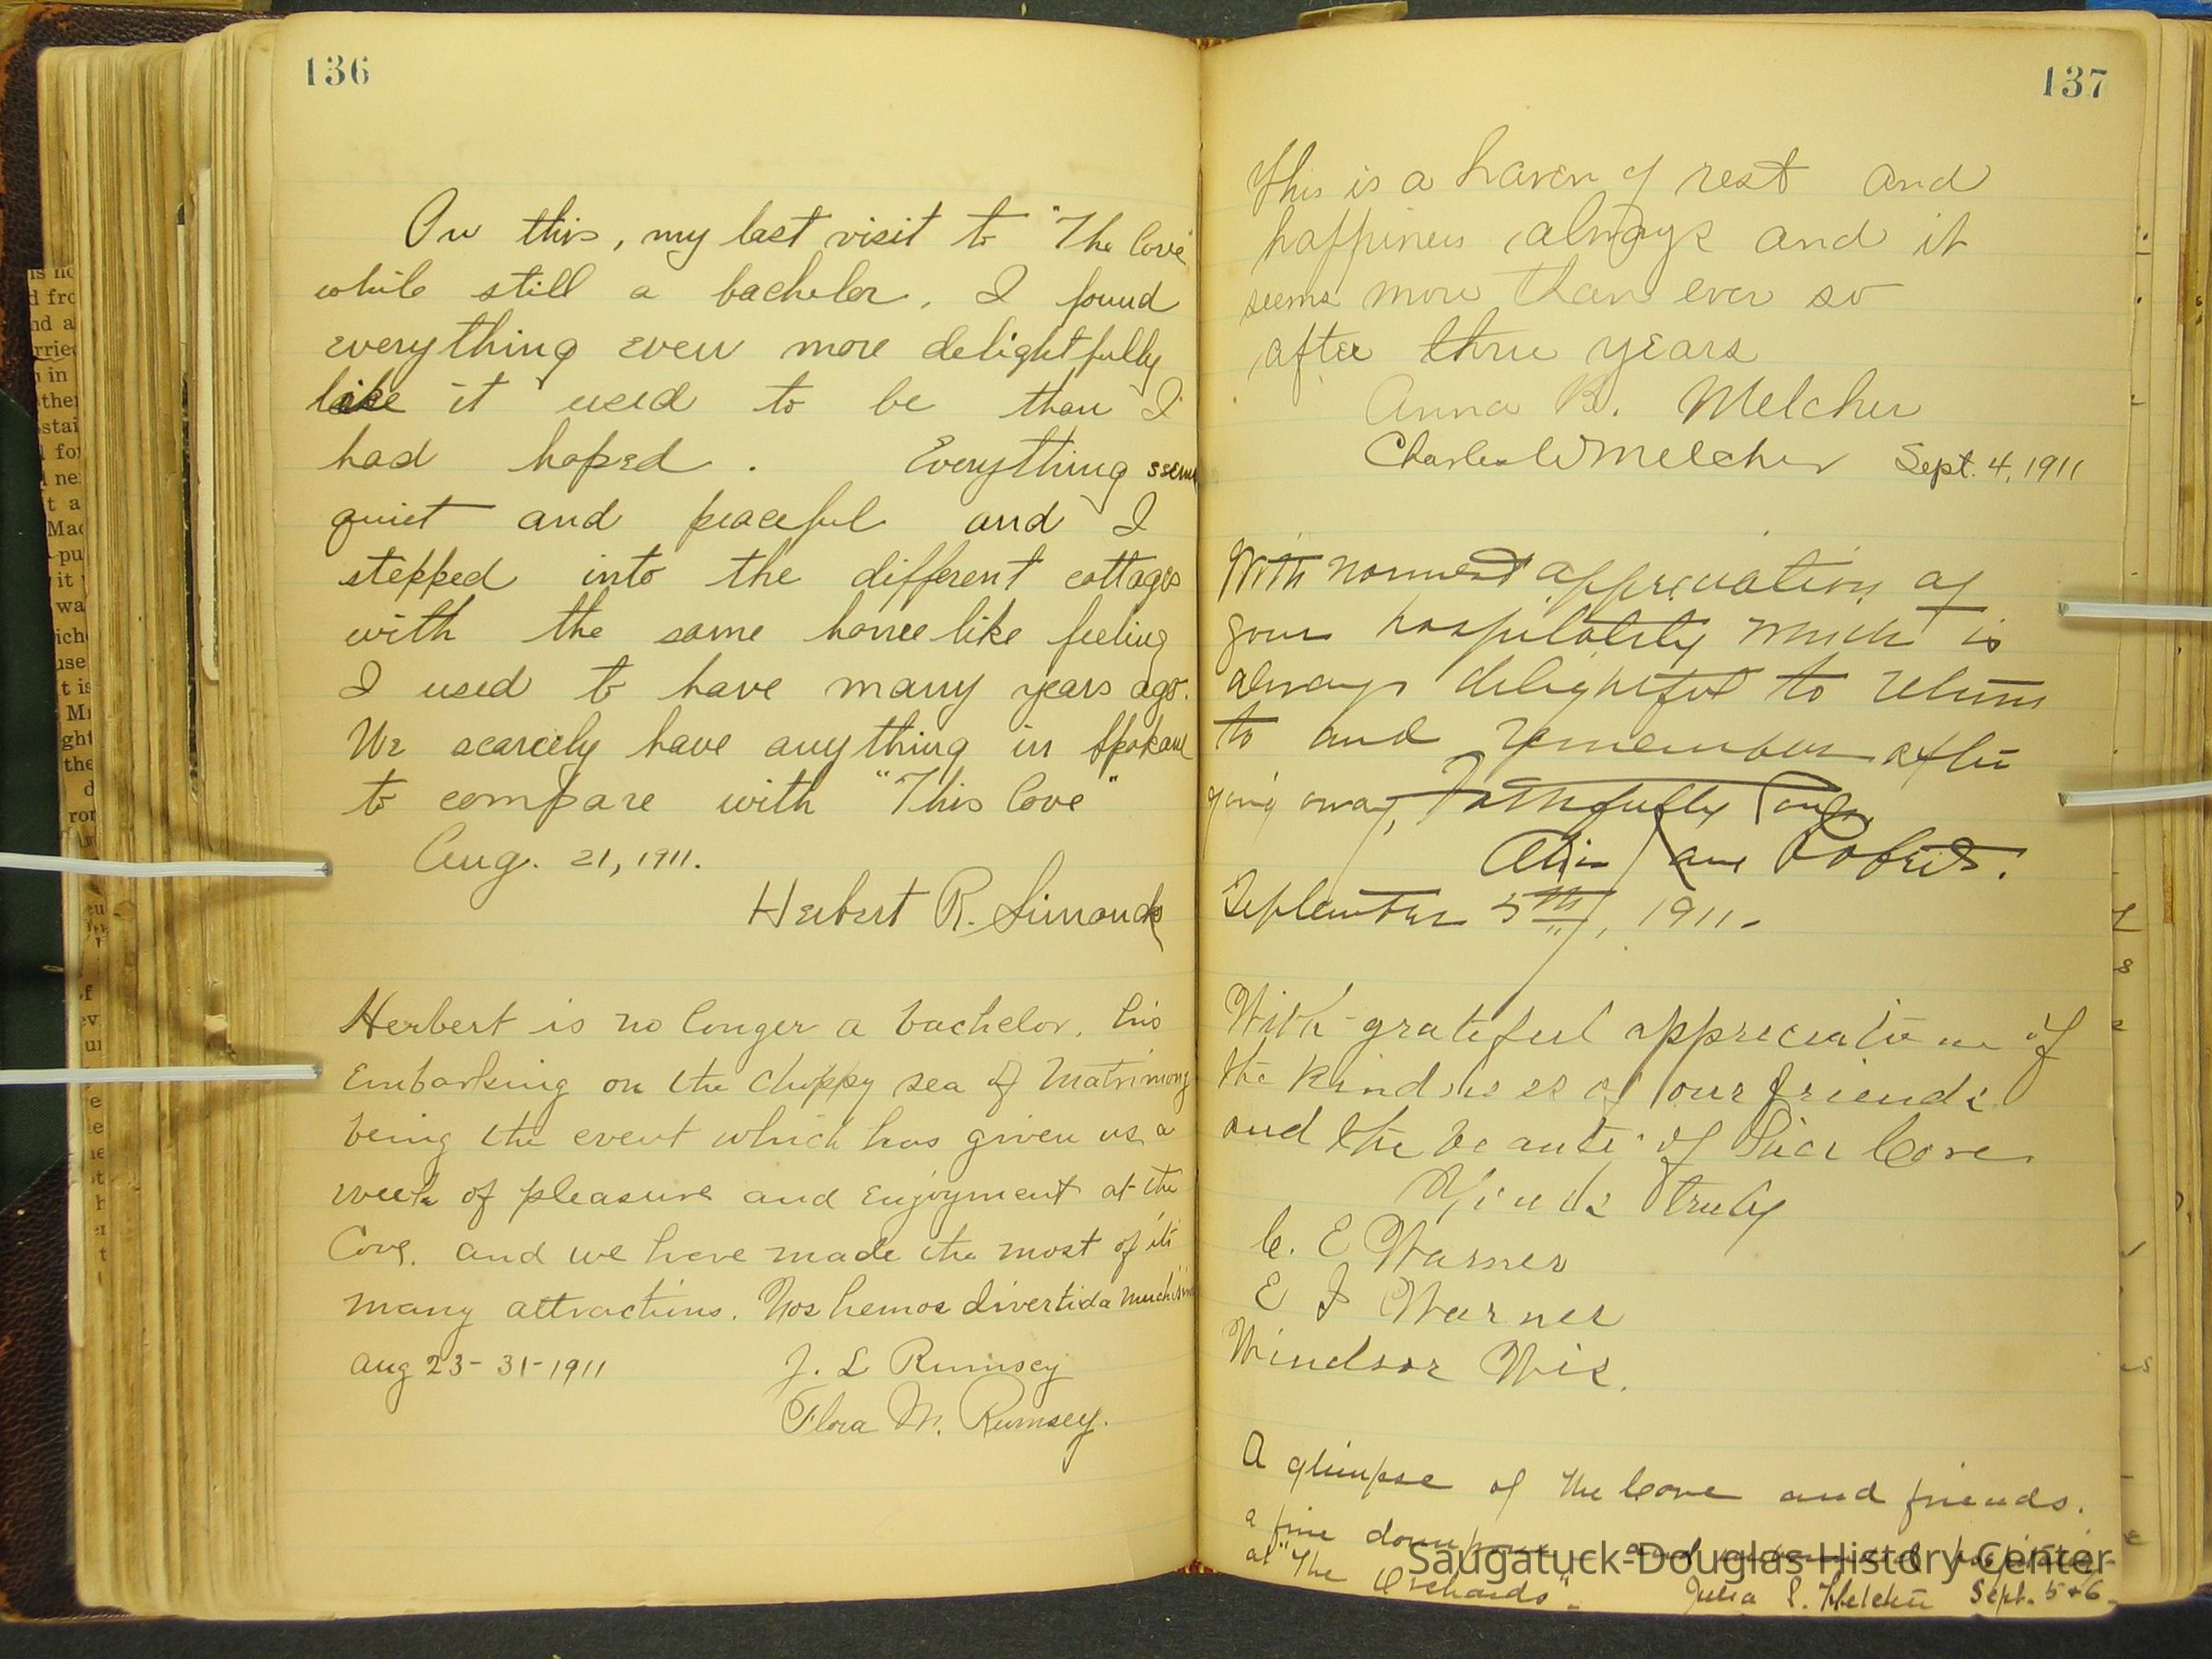 136
On this, my last visit to "The Cove"
while still a bachelor, I found
everything even more delightfully
like it used to be than I
had hoped. Everything seems
quiet and peaceful and I
stepped into the different cottages
with the same homelike feeling
I used to have many years ago.
We scarcely have anything in Spokane
to compare with "This Cove"
Aug. 21, 1911.
Herbert R. Simonds
Herbert is no longer a bachelor, his
Embarking on the choppy sea of Matrimony
being the event which has given us a
week of pleasure and enjoyment at the
Cove. and we have made the most of its
many attractions. Nos hemos divertida muchisimo
Aug 23-31-1911 J. L Rumsey
Flora M. Rumsey.
137
This is a haven of rest and
happiness always and it
seems more than ever so
after three years
Anna B. Melcher
Charles W Melcher Sept. 4, 1911
With warmest appreciation of
your hospitality which is
always delightful to return
to and remember after
going away, Faithfully Yours
Jane Roberts.
September 5th, 1911.
With grateful appreciation of
the kindness of our friends
and the beauty of Pier Cove
Yours truly
C. E Warner
E J Warner
Windsor Wis.
A glimpse of the Cove and friends.
a fine downpour and hospitality
at "The Orchards". Julia S. Sept. 5+6.
Saugatuck-Douglas History Center